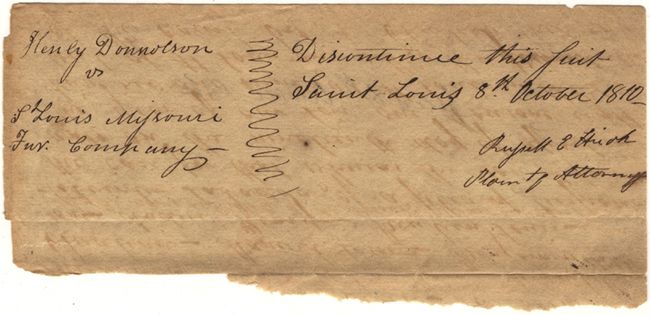 Henly Donnolson
vs
St Louis Missouri
Fur. Company
Discontinue this suit
Saint Louis 8th October 1810
Russell E Hicok
Plaintf Attorney